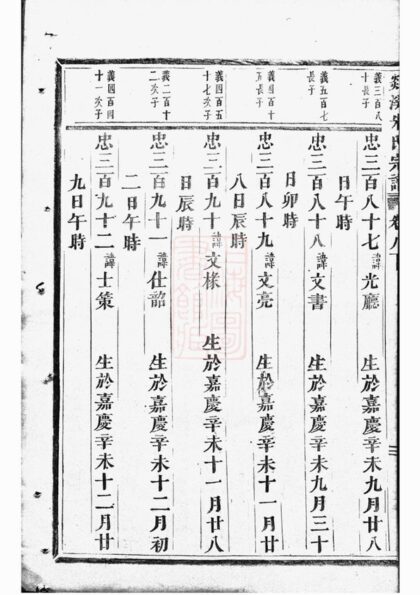 溪宋氏宗譜 卷八下
義三百八
十長子
忠三百八十七諱光廳 生於嘉慶辛未九月廿八
日午時
義五百七
長子
忠三百八十八諱文書 生於嘉慶辛未九月三十
日卯時
義四百十
五長子
忠三百八十九諱文亮 生於嘉慶辛未十一月廿
八日辰時
義四百五
十七次子
忠三百九十諱文樣 生於嘉慶辛未十一月廿八
日辰時
義二百十
二次子
忠三百九十一諱仕韶 生於嘉慶辛未十二月初
二日午時
義四百四
十一次子
忠三百九十二諱士策 生於嘉慶辛未十二月廿
九日午時